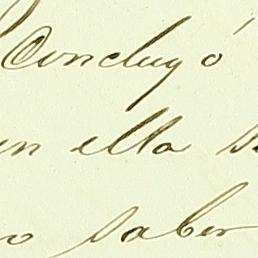 Concluyó
en ella s
o saber